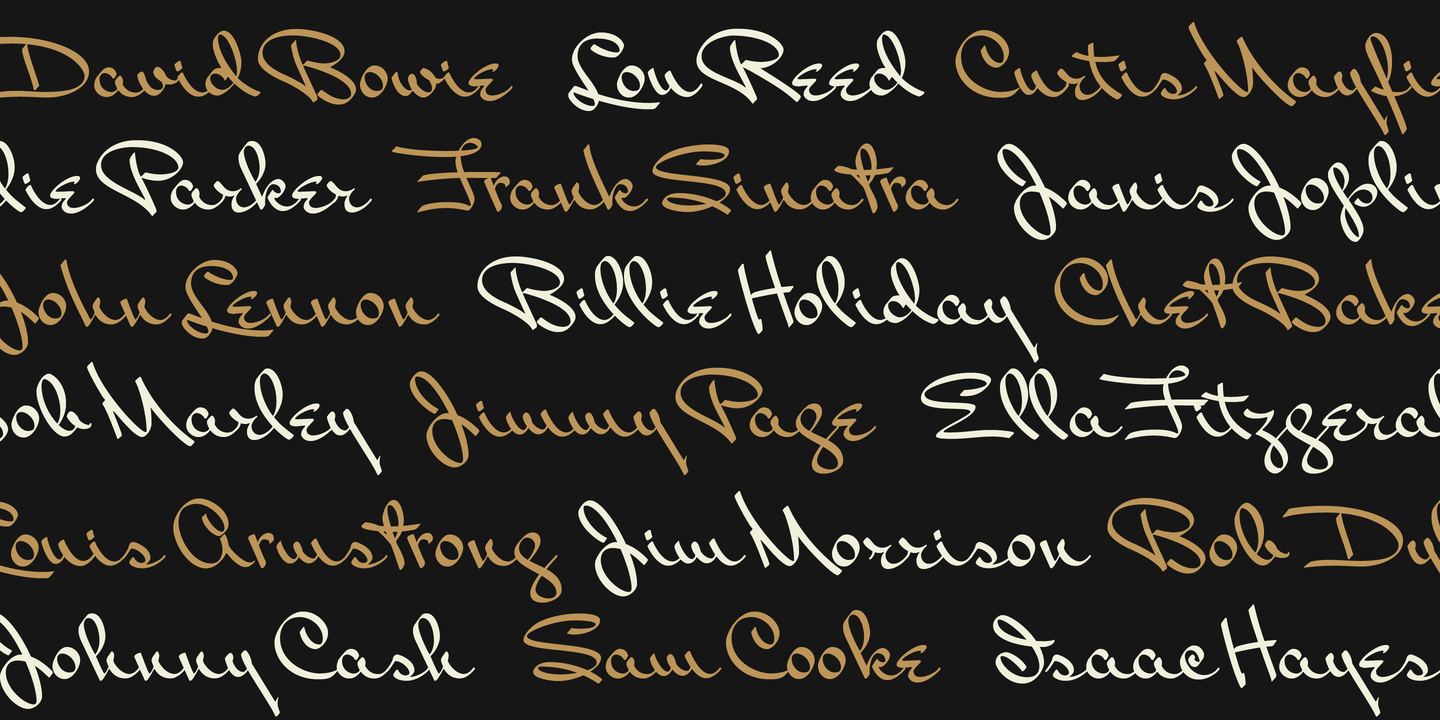 David Bowie Lou Reed Curtis Mayfie
lie Parker Frank Sinatra Janis Joplin
John Lennon Billie Holiday Chet Bake
ob Marley Jimmy Page Ella Fitzgeral
Louis Armstrong Jim Morrison Bob Dyl
Johnny Cash Sam Cooke Isaac Hayes